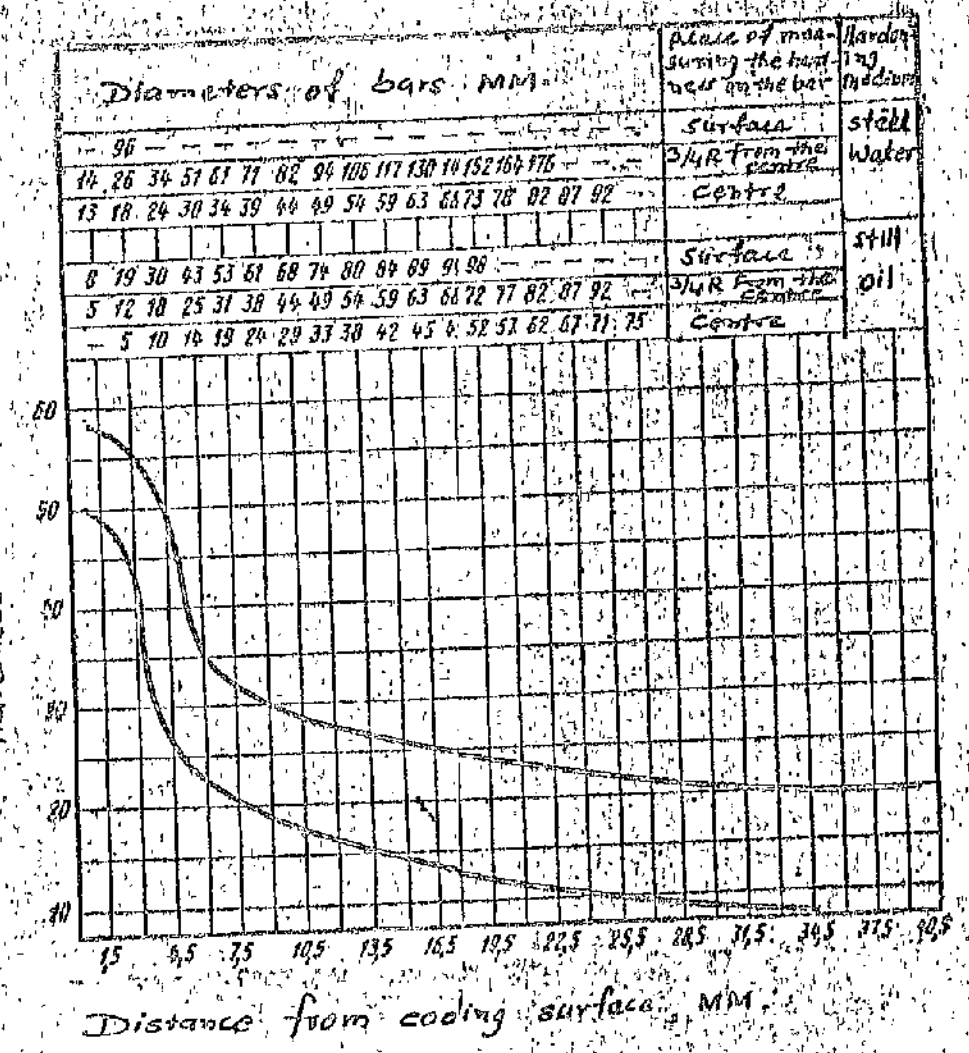 Diameters of bars MM
place of mea-
suring the hard-
ness on the bar
Harden-
ing
Medium
- 96 - - - - - - - - - - - - - - - -
surface
still
14 26 34 51 61 71 82 94 106 117 130 14 152 164 176 - - -
3/4R from the
centre
Water
13 18 24 30 34 39 44 49 54 59 63 68 73 78 82 87 92 -
Centre
8 19 30 43 53 61 68 74 80 84 89 91 98 - - - - -
surface
still
5 12 18 25 31 38 44 49 54 59 63 68 72 77 82 87 92 -
3/4R from the
centre
oil
- 5 10 14 19 24 29 33 38 42 45 4 52 57 62 67 71 75
Centre
60
50
40
30
20
10
1,5 6,5 7,5 10,5 13,5 16,5 19,5 22,5 25,5 28,5 31,5 34,5 37,5 40,5
Distance from cooling surface, MM.